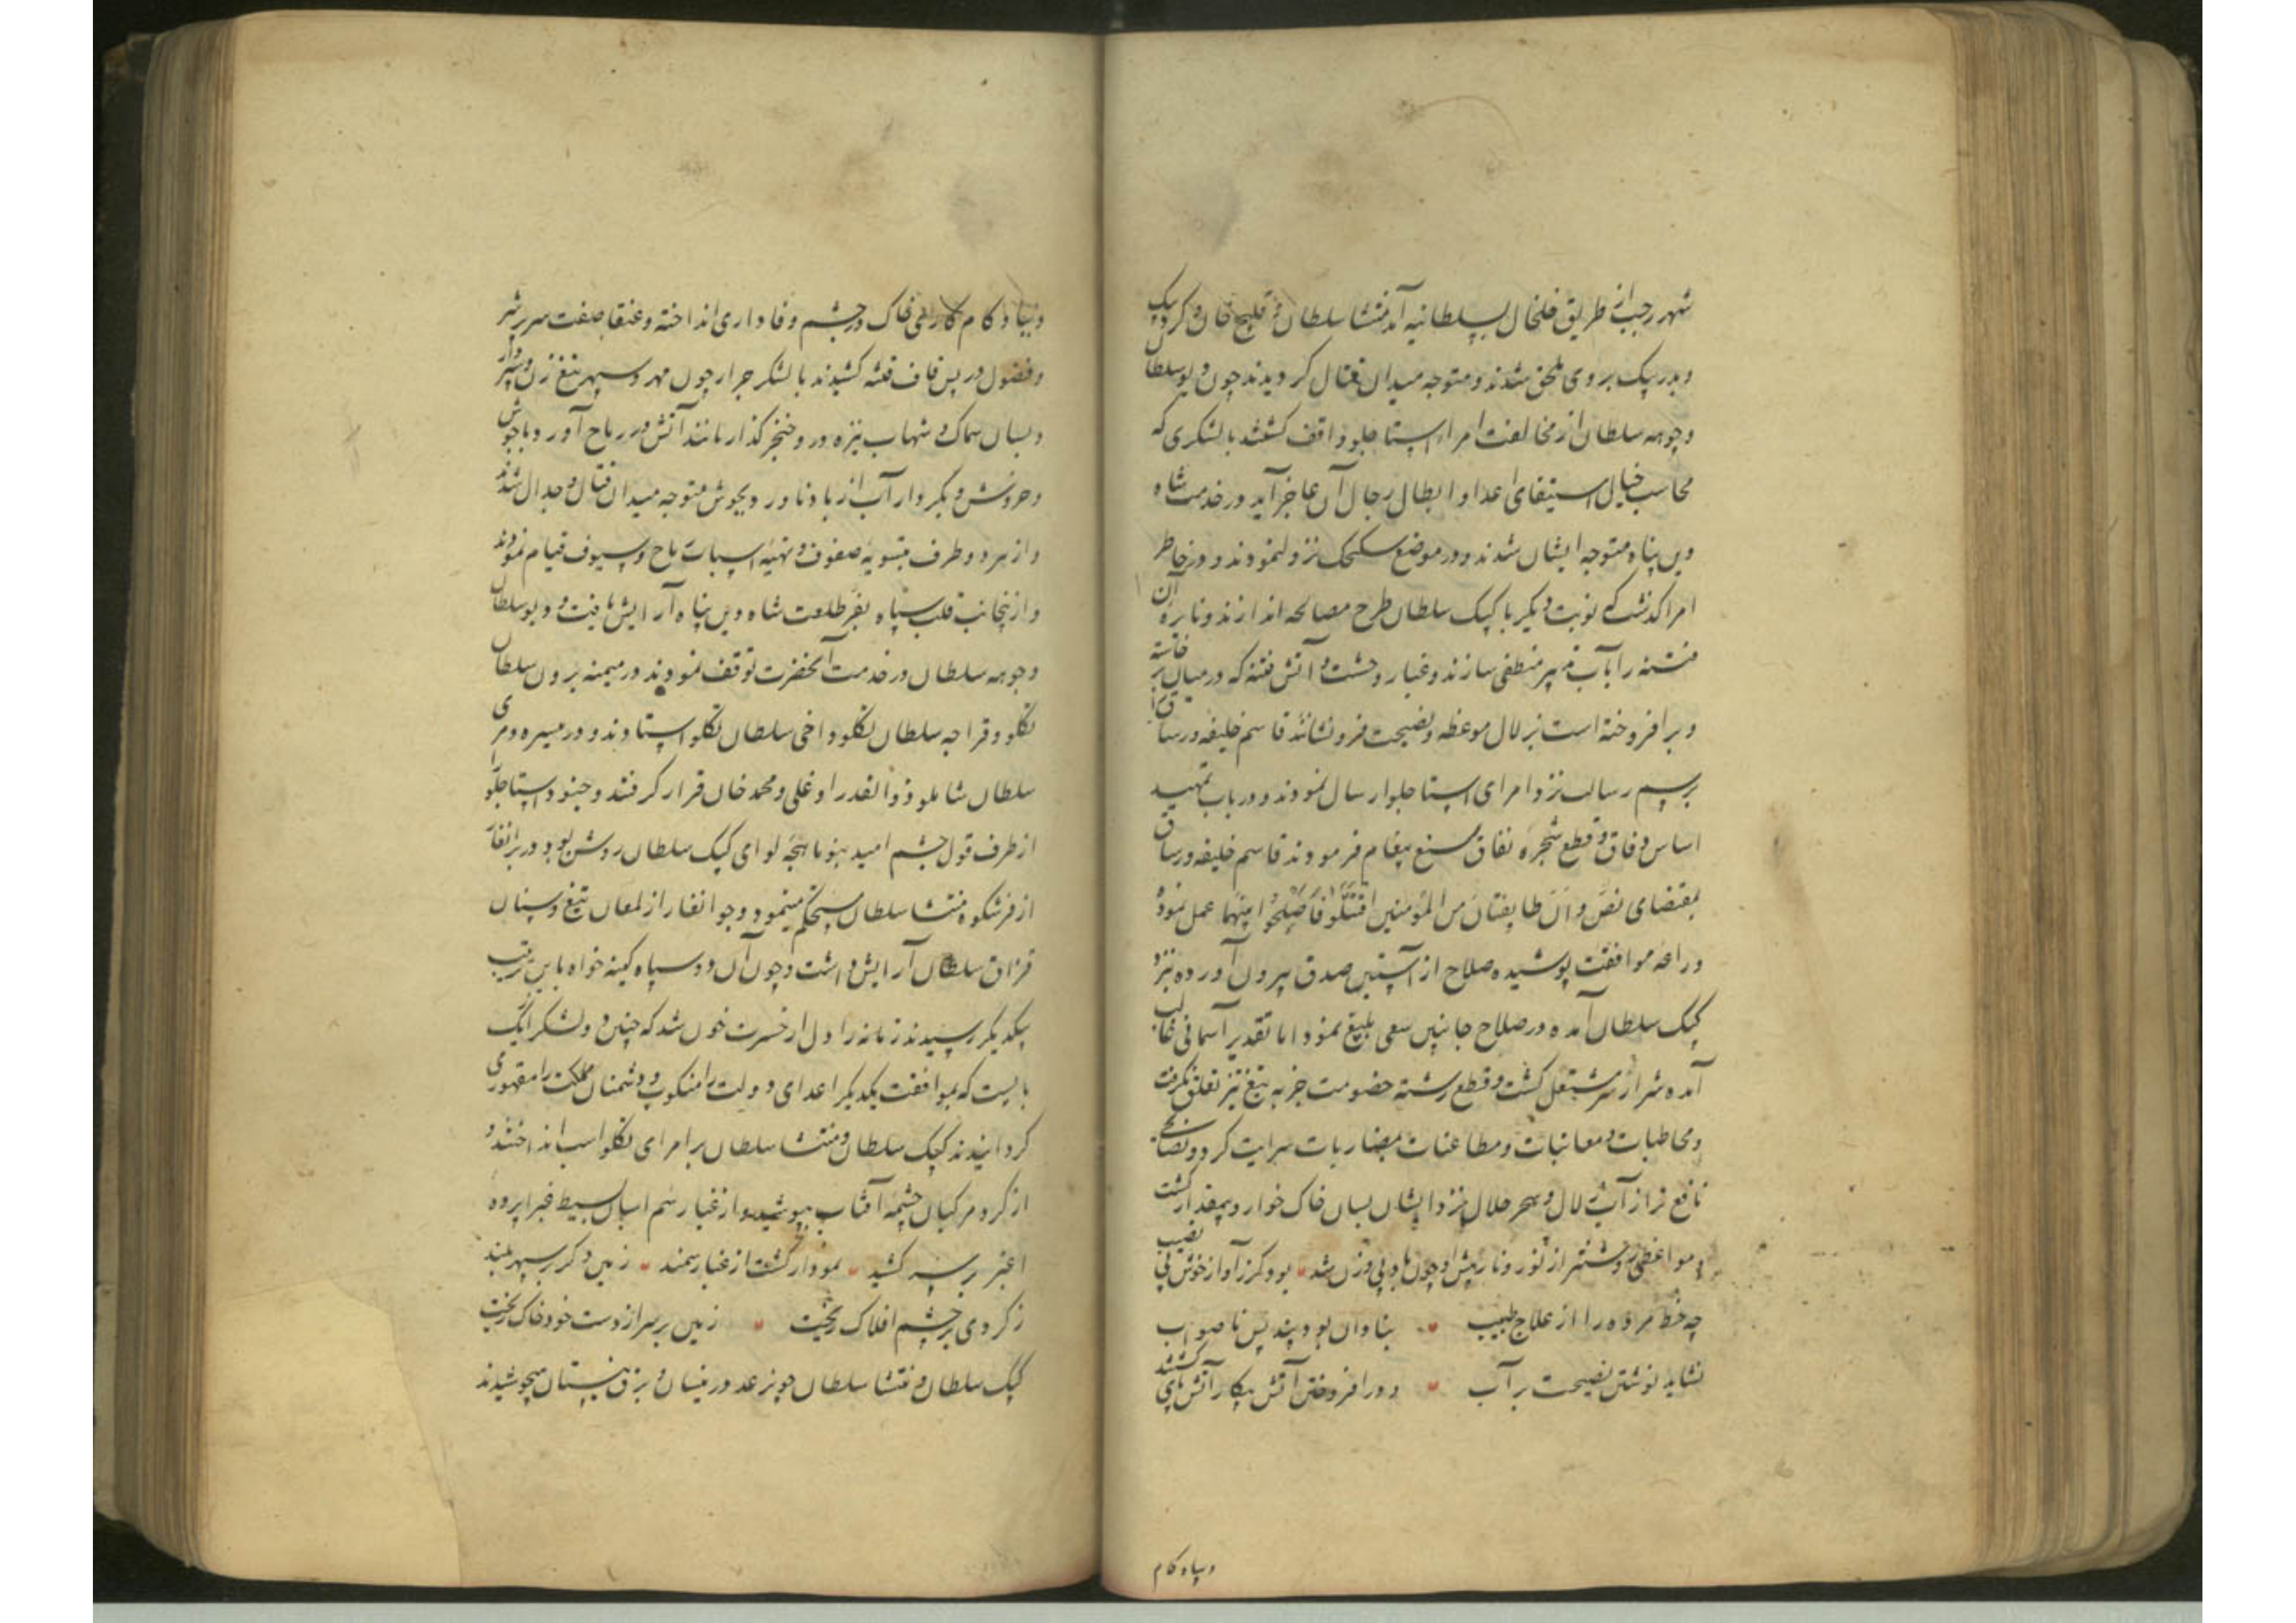 شهر رجب از طریق خلخال بسلطانیه آمد منتشا سلطان و قلیج خان و کرد بیک
و بدر بیک بر وی ملحق شدند و متوجه میدان قتال کردیدند چون دیو سلطان
و جوهه سلطان از مخالفت امراء استاجلو واقف کشتند با لشکری که
محاسب خیال از استیفای اعداد ابطال رجال آن عاجز آید در خدمت شاه
دین پناه متوجه ایشان شدند و در موضع سکنجک نزول نمودند و در خاطر
امرا کذشت که نوبت دیکر با کپک سلطان طرح مصالحه اندازند و نایره آن
فتنه را بآب تدبیر منطفی سازند و غبار وحشت و آتش فتنه که در میان بر خاسته
و بر افروخته است بزلال موعظه و نصیحت فرو نشانند قاسم خلیفه ورساق را
برسم رسالت نزد امرای استاجلو ارسال نمودند و در باب تمهید
اساس وفاق و قطع شجره نفاق پیغام فرمودند قاسم خلیفه ورساق
بمقتضای نص و ان طایفتان من المؤمنین اقتتلوا فاصلحوا بینهما عمل نموده
دراعه موافقت پوشیده صلاح از آستین صدق بیرون آورده نزد
کپک سلطان آمده در صلاح جانبین سعی بلیغ نمود اما تقدیر آسمانی غالب
آمده شرار شر مشتعل کشت و قطع رشته خصومت جز به تیغ تیز تعلق نکرفت
و مخاطبات و معاتبات و مطاعنات بمضاربات سرایت کرد و نصایح
نافع تر از آب زلال و سحر حلال نزد ایشان بسان خاک خوار و بیمقدار کشت
و مواعظ روشنتر از نور و نار پیش او چون باد بی وزن شد بود کرز آواز خوش بی نصیب
چه حظ مرده را از علاج طبیب بنادان بود پند بس ناصواب
نشاید نوشتن نصیحت بر آب و در افروختن آتش پیکار آتش پای کشتند
دیباه کام
دیباه کام خاک در چشم وفاداری انداخته و عنقا صفت سر بر شر
و فضول در پس قاف فتنه کشیدند با لشکر جرار چون مهر و سپهر تیغ زن و سپر دار
و بسان سماک و شهاب نیزه ور و خنجر کذار مانند آتش در ریاح آور و باجوش
و خروش و بکردار آب از باد ناورد بجوش متوجه میدان قتال و جدال شدند
و از هر دو طرف بتسویه صفوف و تهیه اسباب رماح و سیوف قیام نمودند
و از ینجانب قلب سپاه بفر طلعت شاه دین پناه آرایش یافت و دیو سلطان
و جوهه سلطان در خدمت آنحضرت توقف نمودند در میمنه برون سلطان
تکلو و قراجه سلطان تکلو و اخی سلطان تکلو استادند و در میسره دمری
سلطان شاملو و ذوالقدر اوغلی و محمد خان قرار کرفتند و جنود استاجلو
از طرف قول چشم امید بنو ماهجه لوای کپک سلطان روشن بود و در برانغار
از فر شکوه منتشا سلطان مستحکم مینمود و جوانغار از لمعان تیغ و سنان
قزاق سلطان آرایش داشت و چون آن دو سپاه کینه خواه باین ترتیب
بیکدیکر رسیدند زمانه را دل از حسرت خون شد که چنین دو لشکر ایک
بایست که بموافقت یکدیکر اعدای دولت را منکوب و دشمنان مملکت را مقهور
کردانیدند کپک سلطان و منتشا سلطان بر امرای تکلو اسب انداختند و
از کرد مرکبان چشمه آفتاب بپوشید و از غبار سم اسبان بسیط غبرا پرده
اغبر بر سر کشید نمودار کشت از غبار سمند زمین دکر بر سپهر بلند
ز کردی بر چشم افلاک ریخت زمین بر سر از دست خود خاک ریخت
کپک سلطان و منتشا سلطان چو رعد در نیسان و برق نیستان میجوشیدند